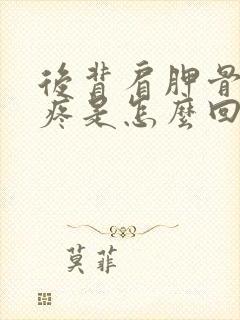 後背肩胛骨
疼是怎麼回
莫菲